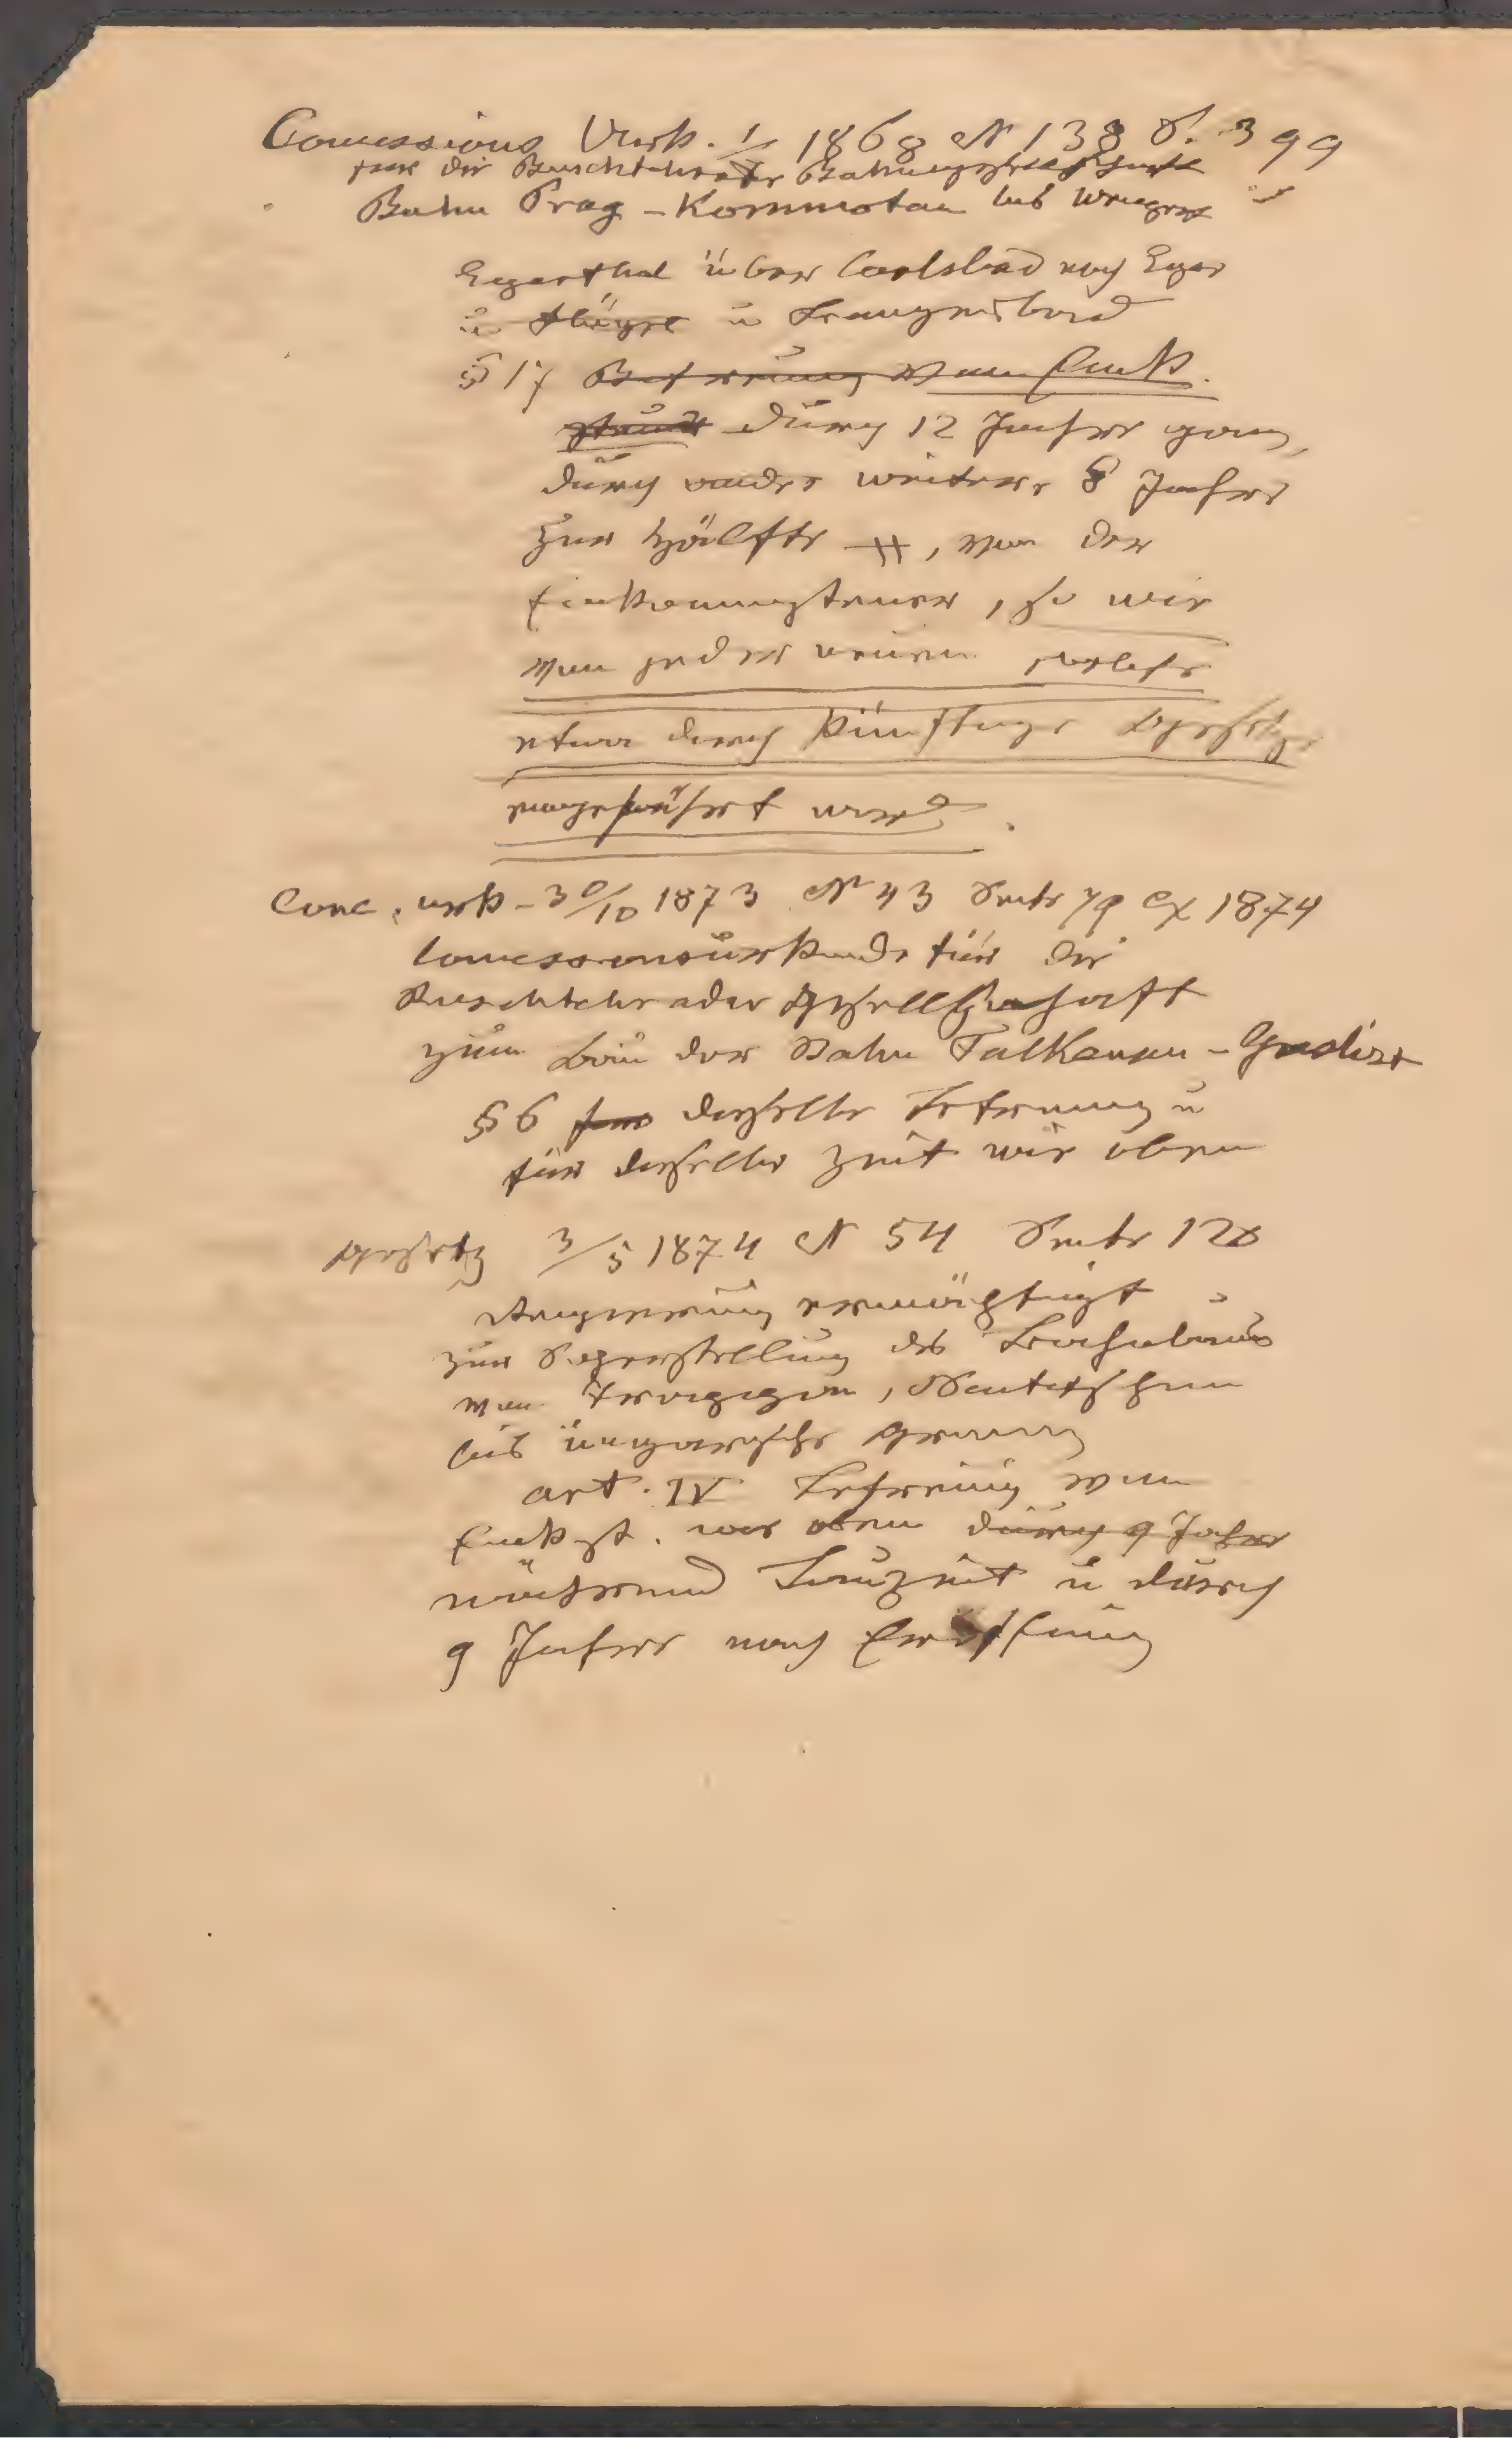 Concessions Urk. 1/7 1868 N 138 S. 399
für die Buschtehrader Bahngesellschaft
Bahn Prag - Kommotau bis Weipert
Egerthal über Carlsbad nach Eger
u Flügel u Franzensbad
§ 17 Befreiung von Eink
steuer durch 12 Jahre ganz,
durch weitere 8 Jahre
zur Hälfte, von der
Einkommsteuer, so wie
von jeder neuen welche
etwa durch künftige Gesetze
eingeführt wird.
Conc. urk - 30/10 1873 N 43 Seite 79 ex 1874
Concessionsurkunde für die
Buschtehrader Gesellschaft
zum Bau der Bahn Falkenau - Graslitz
§ 6 dieselbe Befreiung u
für dieselbe Zeit wie oben
Gesetz 3/5 1874 N 54 Seite 128
Regierung ermächtigt
zur Sicherstellung des Bahnbaus
von Neutitschein
bis ungarische Grenze
art. IV Befreiung von
Eink st. wie oben durch 9 Jahre
während Bauzeit u durch
9 Jahre nach Eröffnung